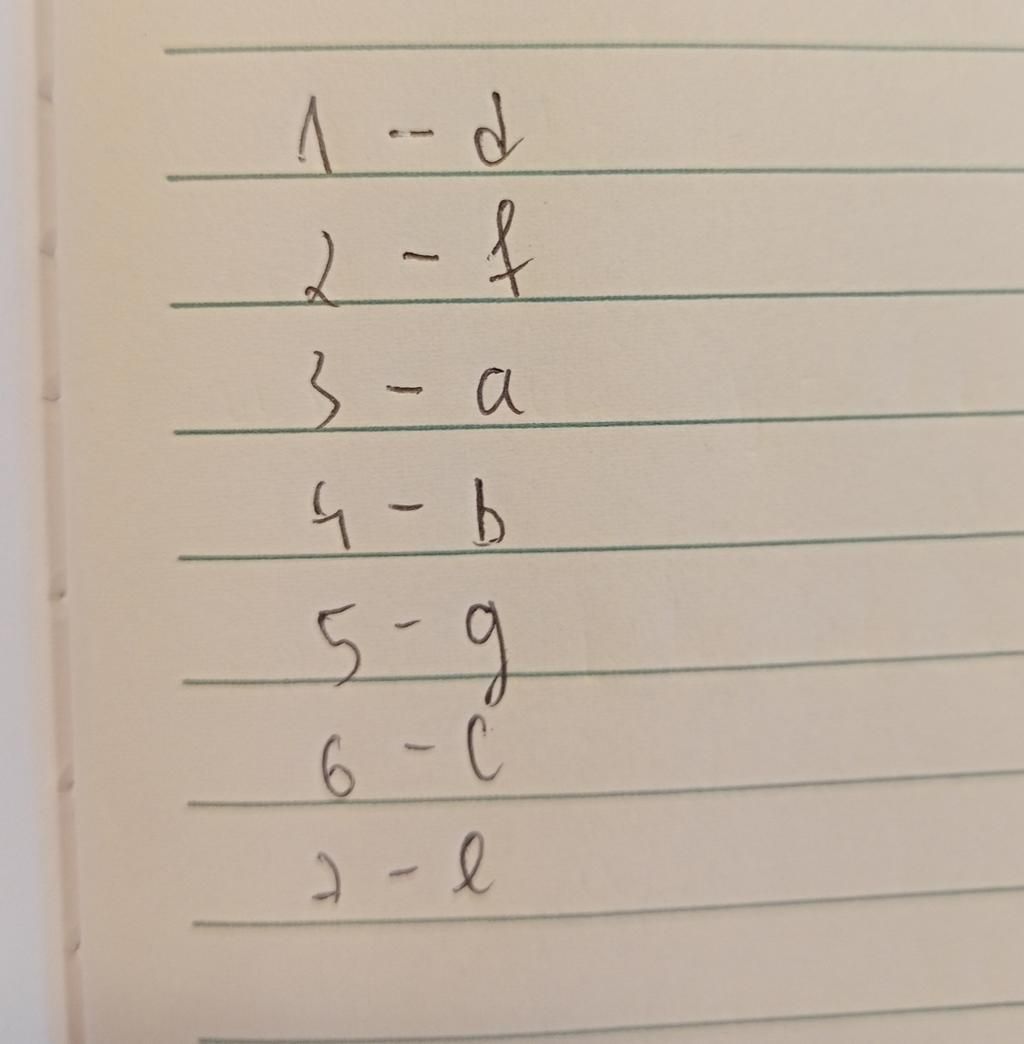 1 - d
2 - f
3 - a
4 - b
5 - g
6 - c
7 - e